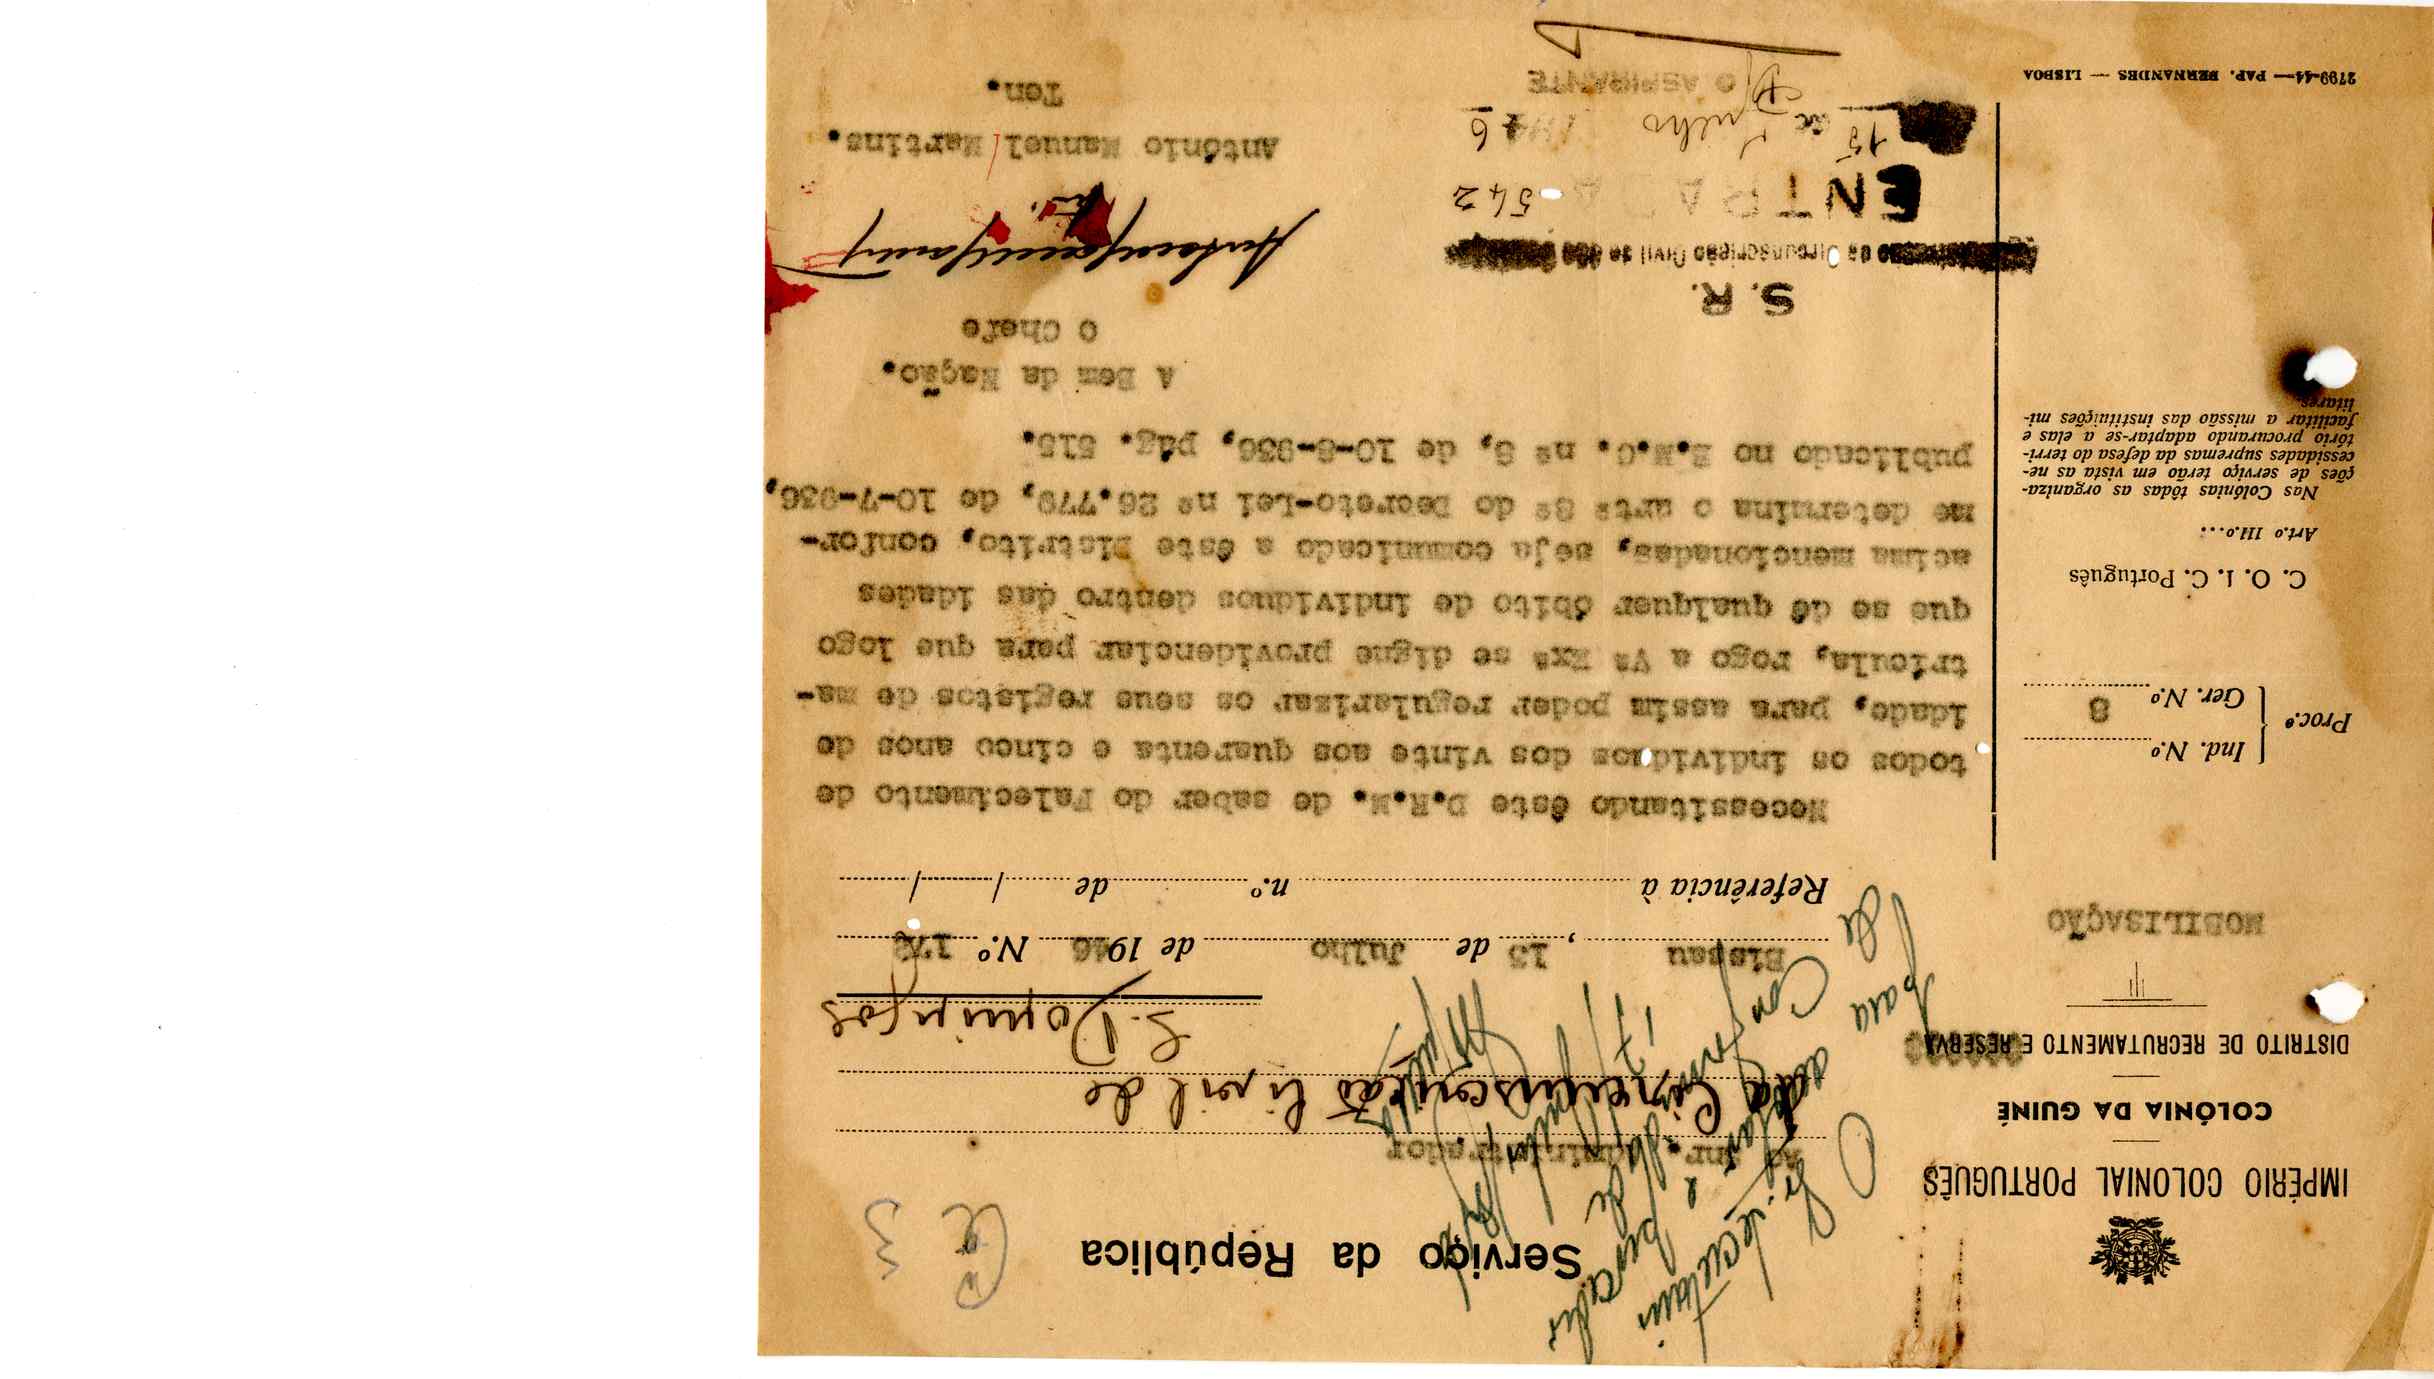 IMPÉRIO COLONIAL PORTUGUÊS
COLÓNIA DA GUINÉ
DISTRITO DE RECRUTAMENTO E RESERVA
MOBILISAÇÃO
Proc.º
Ind. N.º
Ger. N.º 8
C. O. I. C. Português
Art.º III.º...
Nas Colónias tôdas as organiza-
ções de serviço terão em vista as ne-
cessidades supremas da defesa do terri-
tório procurando adaptar-se a elas e
facilitar a missão das instituições mi-
litares.
2799-44— PAP. FERNANDES — LISBOA
Serviço da República
Ce 3
Ao Snr. Administrador
da Circunscrição Civil de
S. Domingos
O Sr. Secretário
para
de
17
Julho
Bissau, 13 de Julho de 1946 N.º 172
Referência à n.º de / /
Necessitando êste D.R.M. de saber do Falecimento de
todos os individuos dos vinte aos quarenta e cinco anos de
idade, para assim poder regularisar os seus registos de ma-
trícula, rogo a Vª Exª se digne providenciar para que logo
que se dê qualquer óbito de individuos dentro das idades
acima mencionadas, seja comunicado a êste Distrito, confor-
me determina o artº 8º do Decreto-Lei nº 26.779, de 10-7-936,
publicado no B.M.C. nº 8, de 10-8-936, pág. 515.
A Bem da Nação.
O Chefe
António Manuel Martins.
Ten.
S. R.
da Circunscrição Civil de
ENTRADA 542
15 de Julho 1946
O ASPIRANTE